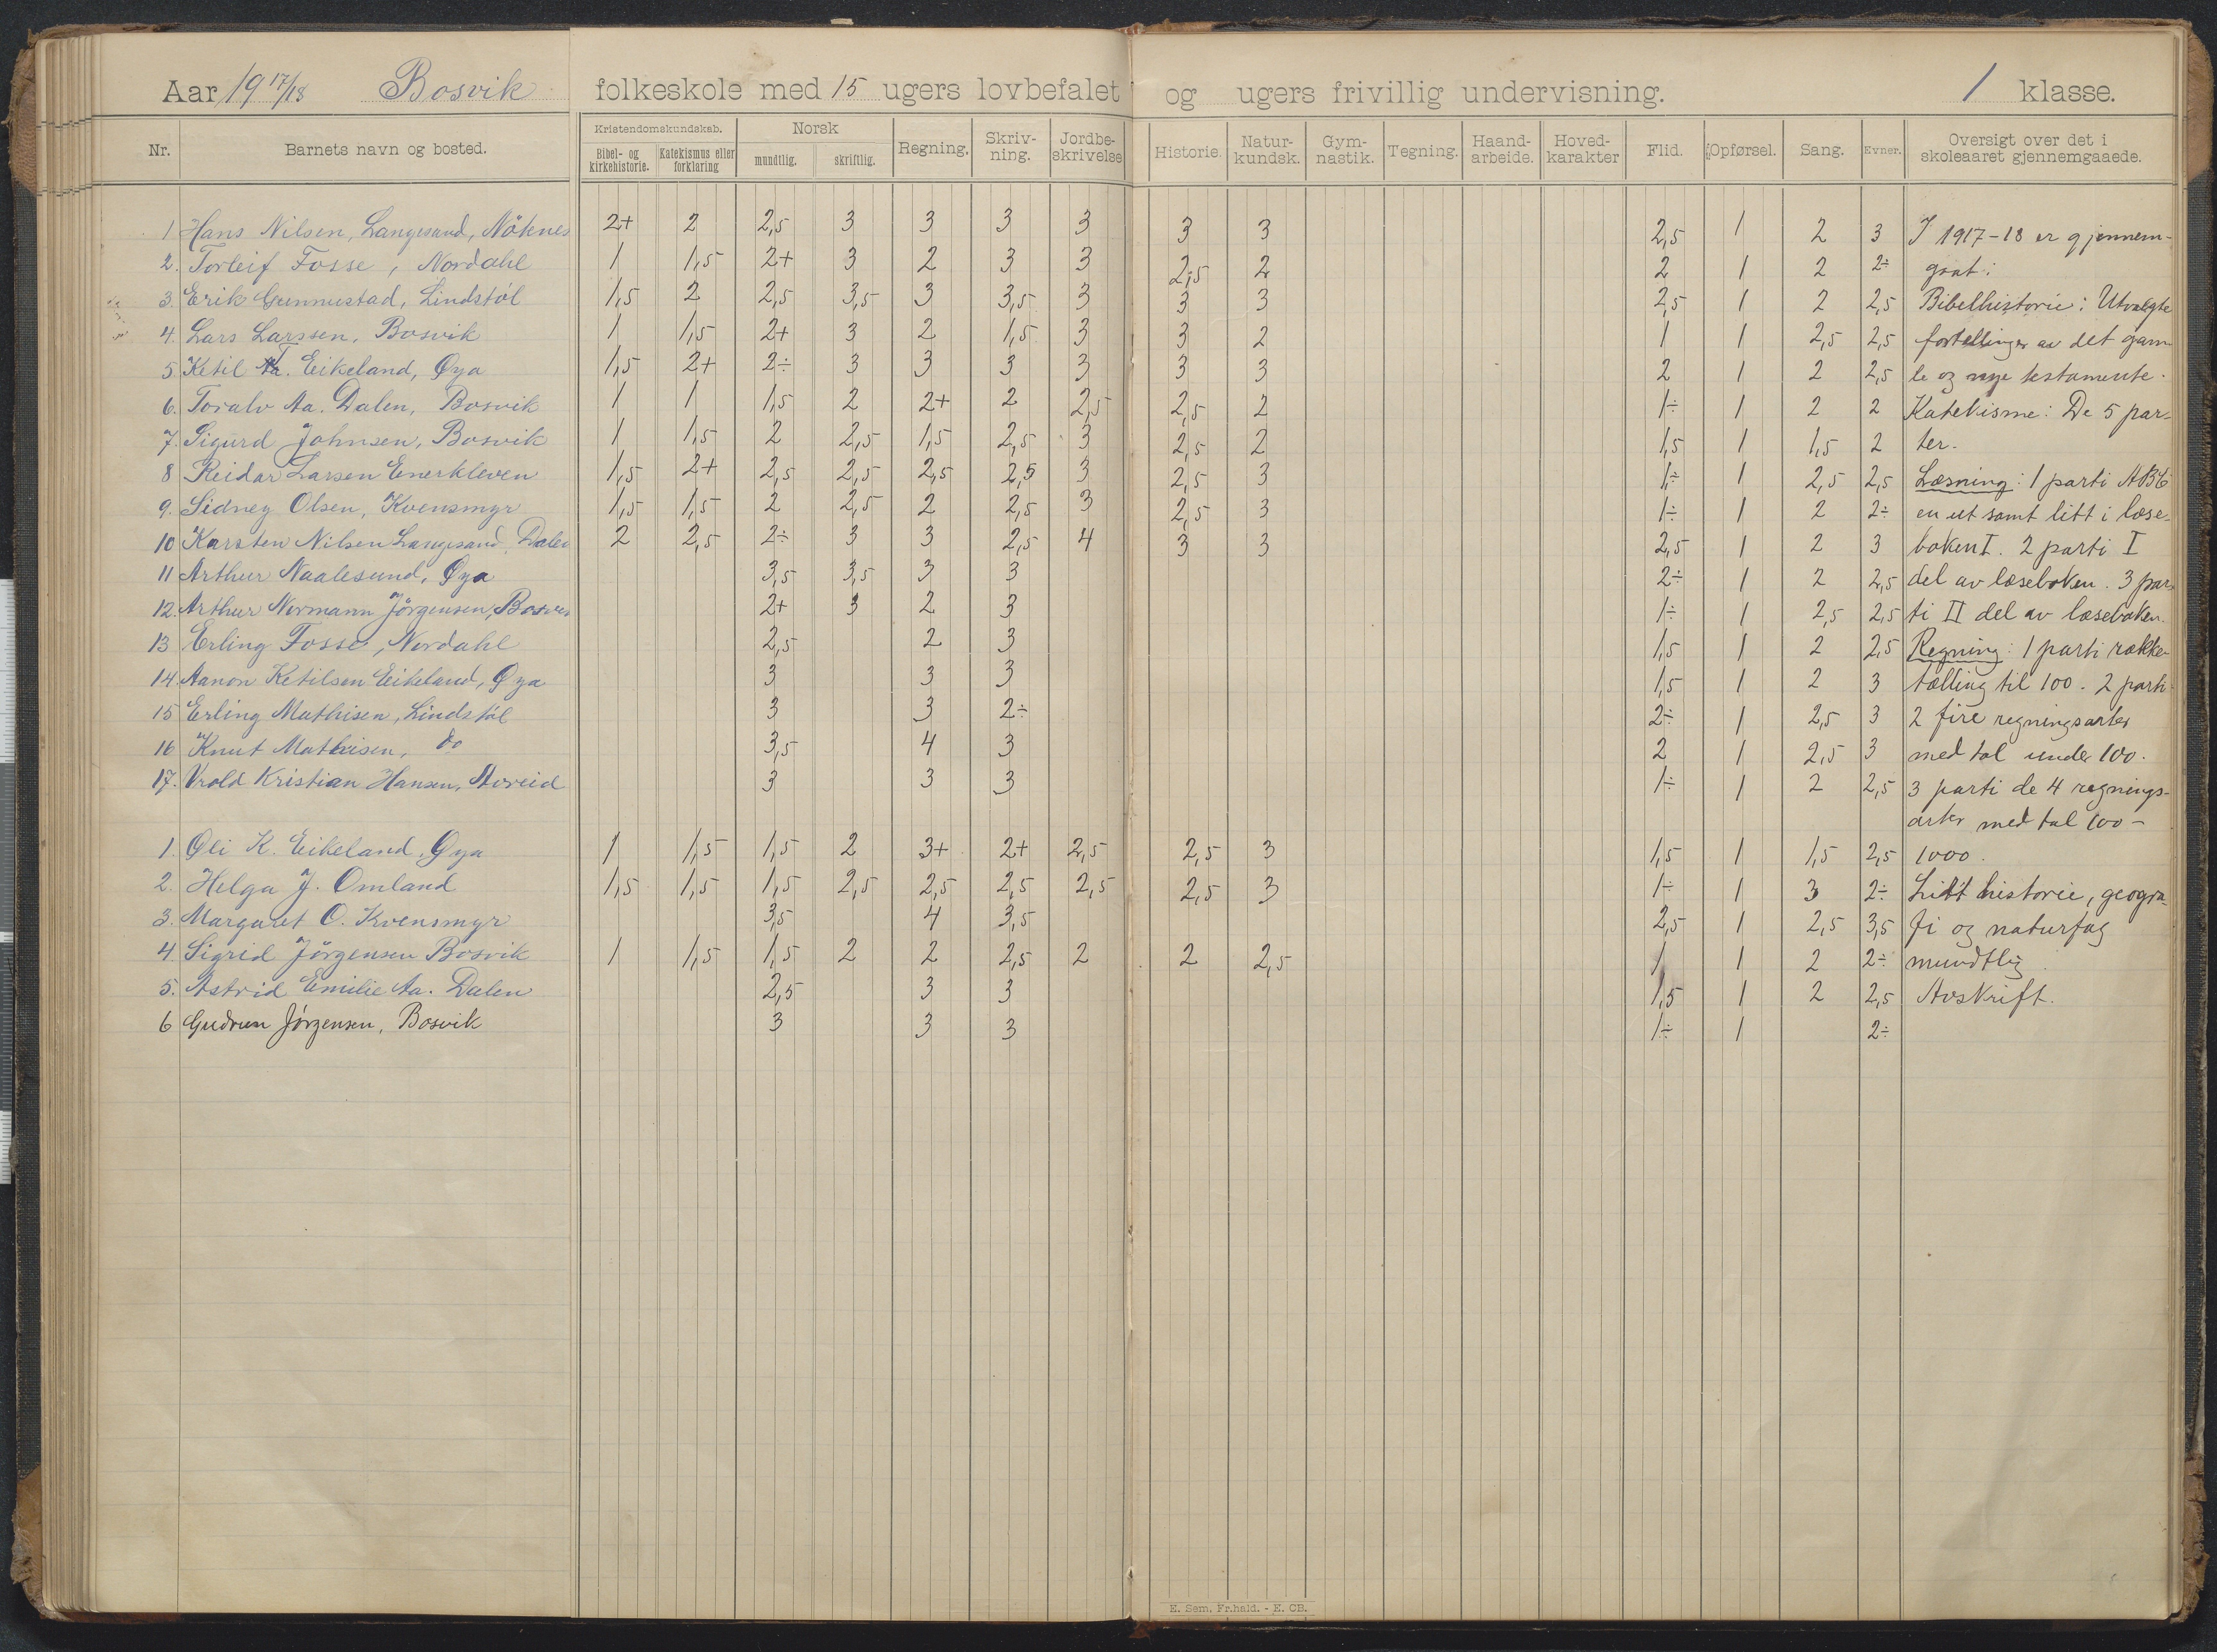 Aar 19 17/18 Bosvik folkeskole med 15 ugers lovbefalet og ugers frivillig undervisning. 1 klasse.
Nr. Barnets navn og bosted. Kristendomskundskab. Bibel- og kirkehistorie. Katekismus eller forklaring Norsk mundtlig. skriftlig. Regning. Skriv- ning. Jordbe- skrivelse Historie. Natur- kundsk. Gym- nastik. Tegning. Haand- arbeide. Hoved- karakter Flid. Opførsel. Sang. Evner. Oversigt over det i skoleaaret gjennemgaaede.
1 Hans Nilsen, Langesand, Nöknes 2+ 2 2,5 3 3 3 3 3 3 2,5 1 2 3 I 1917-18 er gjennem-
2. Torleif Fosse, Nordahl 1 1,5 2+ 3 2 3 3 2,5 2 2 1 2 2÷ gaat:
3. Erik Gunnustad, Lindstöl 1,5 2 2,5 3,5 3 3,5 3 3 3 2,5 1 2 2,5 Bibelhistorie: Utvalgte
4. Lars Larssen, Bosvik 1 1,5 2+ 3 2 1,5 3 3 2 1 1 2,5 2,5 fortellinger av det gam-
5 Ketil T. Eikeland, Øya 1,5 2+ 2÷ 3 3 3 3 3 3 2 1 2 2,5 le og nye testamente.
6. Toralv Aa. Dalen, Bosvik 1 1 1,5 2 2+ 2 2,5 2,5 2 1÷ 1 2 2 Katekisme: De 5 par-
7. Sigurd Johnsen, Bosvik 1 1,5 2 2,5 1,5 2,5 3 2,5 2 1,5 1 1,5 2 ter.
8 Reidar Larsen Enerkleven 1,5 2+ 2,5 2,5 2,5 2,5 3 2,5 3 1÷ 1 2,5 2,5 Læsning: 1 parti ABC
9. Sidney Olsen, Kvensmyr 1,5 1,5 2 2,5 2 2,5 3 2,5 3 1÷ 1 2 2÷ en ut samt litt i læse-
10 Karsten Nilsen Langesand, Dalen 2 2,5 2÷ 3 3 2,5 4 3 3 2,5 1 2 3 boken I. 2 parti I
11 Arthur Naalesund, Øya 3,5 3,5 3 3 2÷ 1 2 2,5 del av læseboken. 3 par-
12. Arthur Normann Jörgensen, 2+ 3 2 3 1÷ 1 2,5 2,5 ti II del av læseboken.
13 Erling Fosse, Nordahl 2,5 2 3 1,5 1 2 2,5 Regning: 1 parti række-
14. Aanon Ketilsen Eikeland, Øya 3 3 3 1,5 1 2 3 tælling til 100. 2 parti
15 Erling Mathisen, Lindstöl 3 3 2÷ 2÷ 1 2,5 3 2 fire regningsarter
16 Knut Mathisen, do 3,5 4 3 2 1 2,5 3 med tal under 100.
17. Vrold Kristian Hansen, 3 3 3 1÷ 1 2 2,5 3 parti de 4 regnings-
arter med tal 100-
1. Oli K. Eikeland, Øya 1 1,5 1,5 2 3+ 2+ 2,5 2,5 3 1,5 1 1,5 2,5 1000.
2. Helga J. Omland 1,5 1,5 1,5 2,5 2,5 2,5 2,5 2,5 3 1÷ 1 3 2÷ Litt historie, geogra-
3. Margaret O. Kvensmyr 3,5 4 3,5 2,5 1 2,5 3,5 fi og naturfag
4. Sigrid Jörgensen Bosvik 1 1,5 1,5 2 2 2,5 2 2 2,5 1 1 2 2÷ mundtlig.
5. Astrid Emilie Aa. Dalen 2,5 3 3 1,5 1 2 2,5 Avskrift.
6 Gudrun Jörgensen, Bosvik 3 3 3 1÷ 1 2÷
E. Sem. Fr.hald. - E. CB.